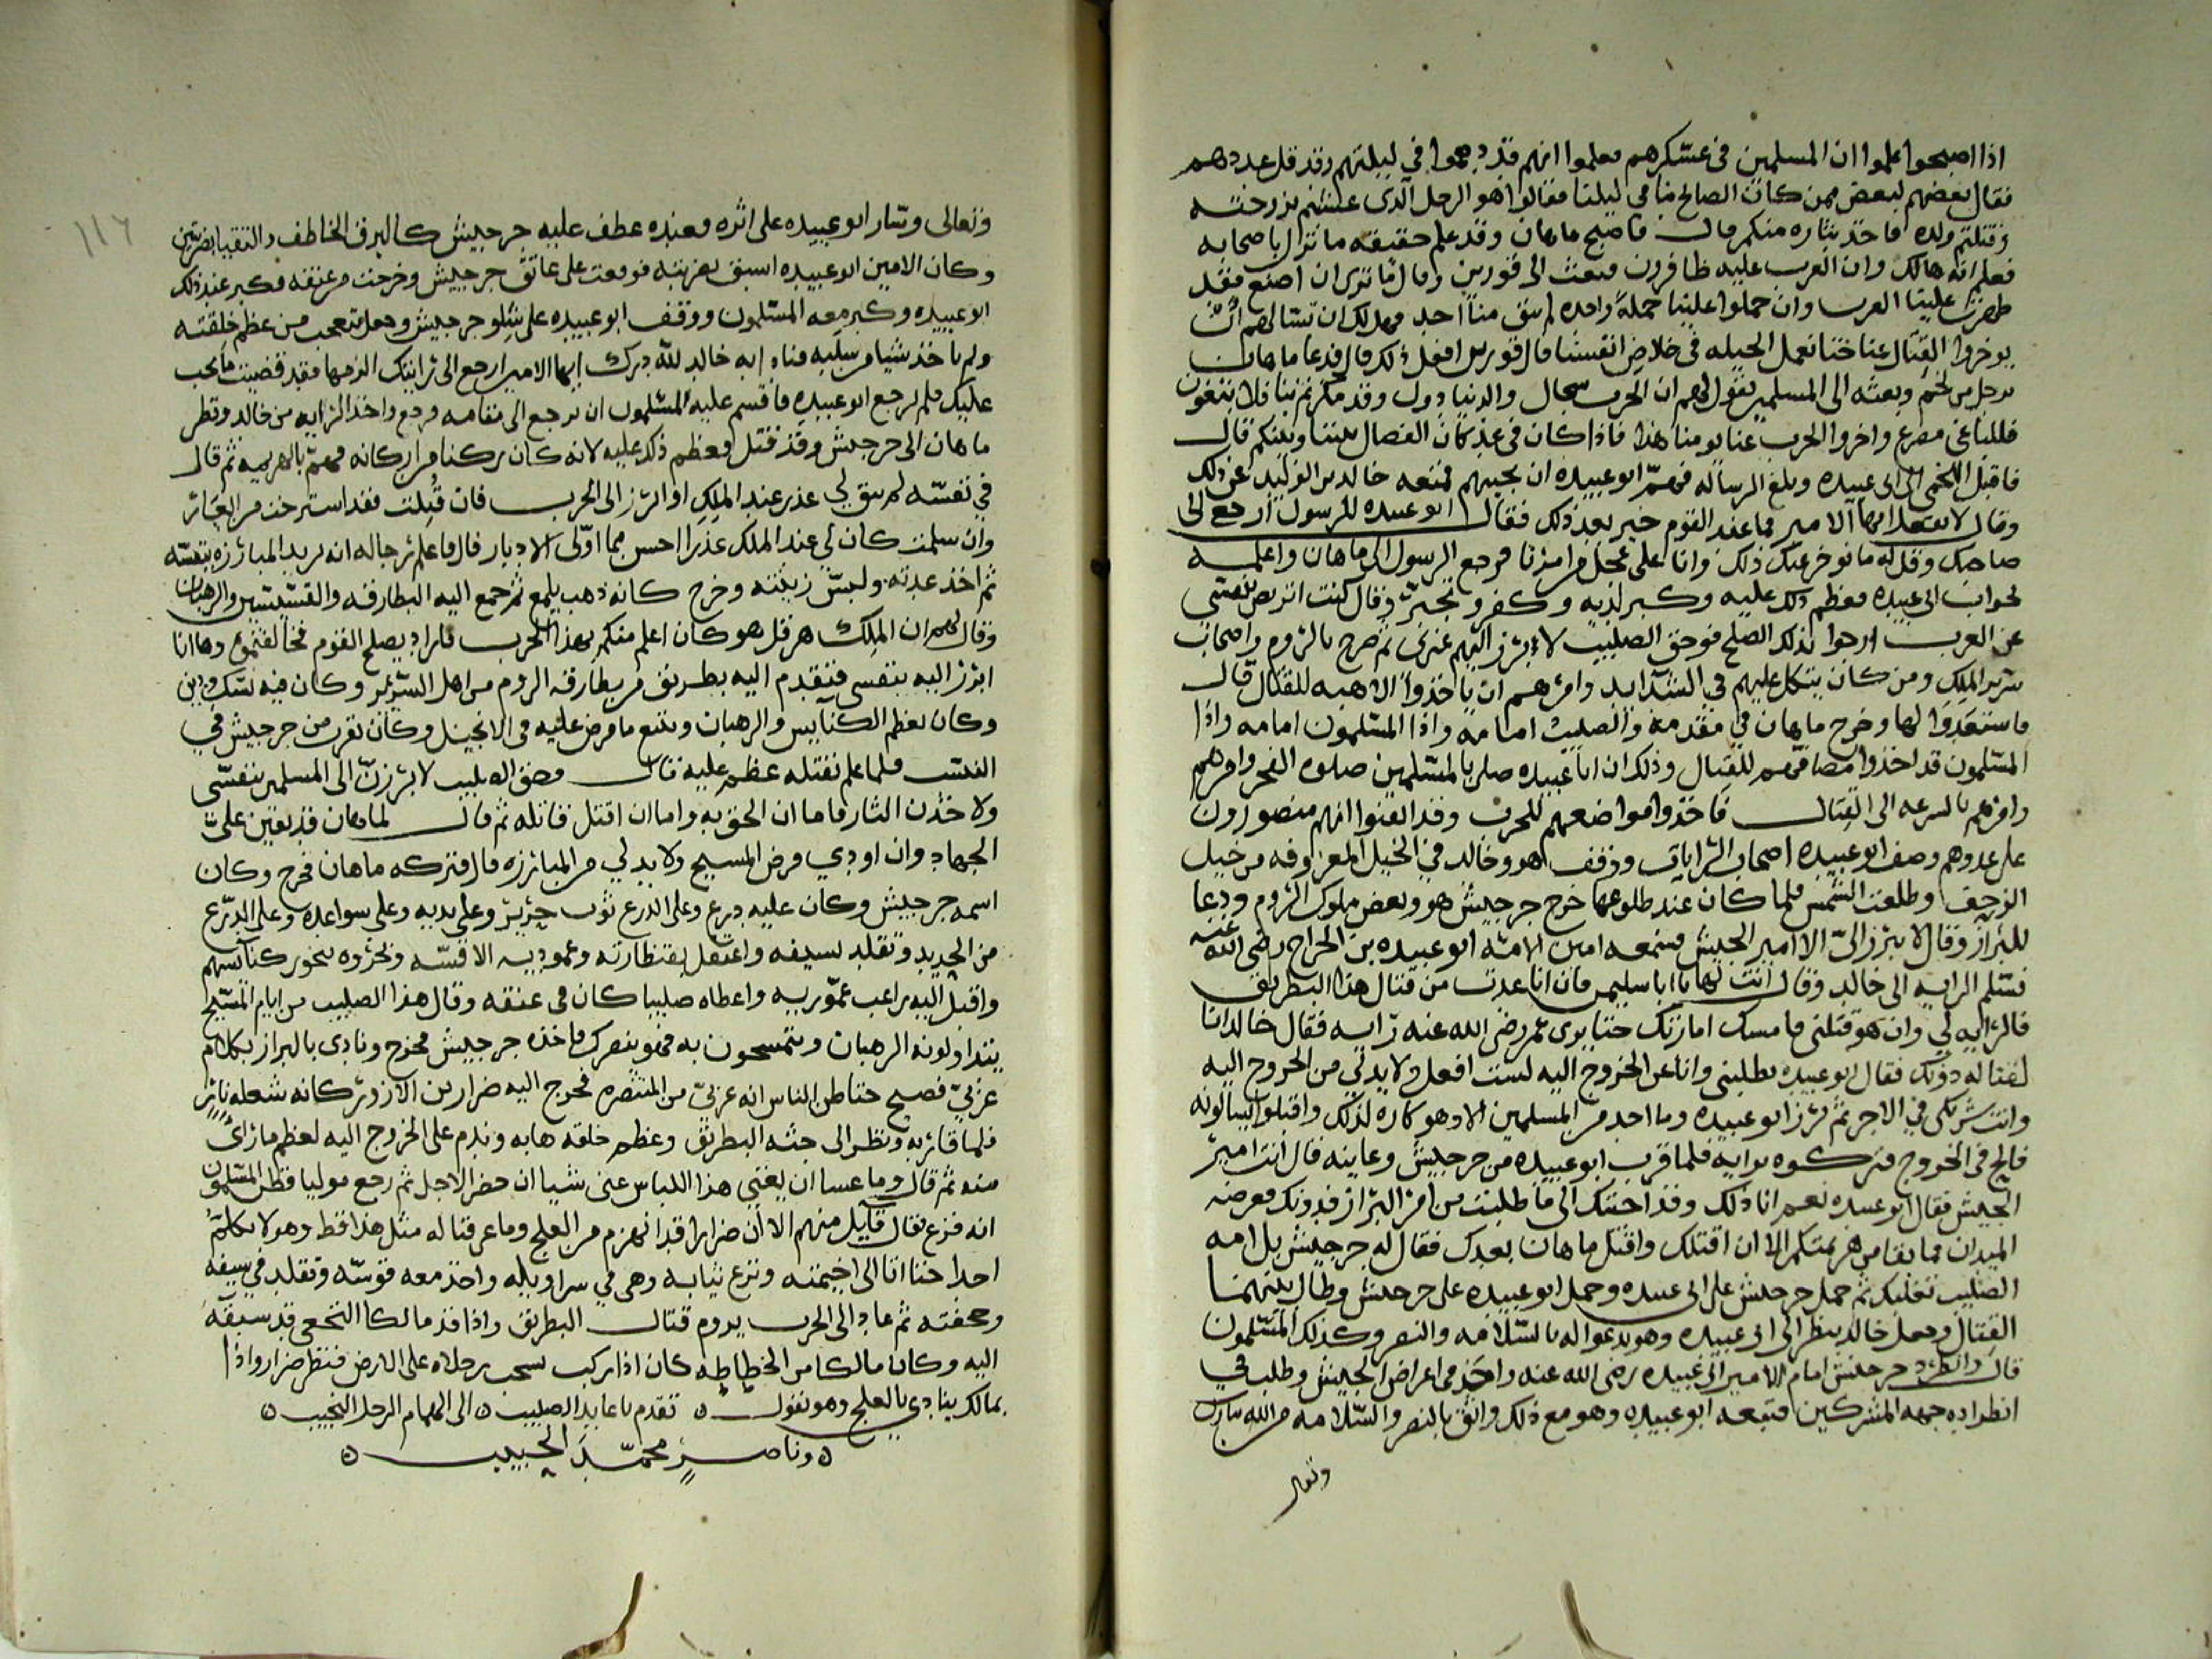 اذا اصبحوا علموا ان المسلمين في عسكرهم فعلموا انهم قد دهموا في ليلتهم وقد قل عددهم
فقال بعضهم لبعض ممن كان الصالح منا في ليلتنا فقالوا هو الرجل الذي غشتم بزوجته
وقتلتم ولده فاخذ بثاره منكم قال فاصبح ماهان وقد علم حقيقه ما نزل باصحابه
فعلم انه هالك وان العرب عليه ظافرون فبعث الى قورين وقال ما ترى ان اصنع فقد
ظهرت علينا العرب وان حملوا علينا حملة واحده لم يبق منا احد فهل لك ان نسالهم ان
يوخروا القتال عنا حتا نعمل الحيله في خلاص انفسنا قال قورين افعل ذلك قال فدعا ماهان
برجل من لخم وبعثه الى المسلمين يقول لهم ان الحرب سجال والدنيا دول وقد مكرتم بنا فلا تبغون
فللباغي مصرع واخروا الحرب عنا يومنا هذا فاذا كان في غد كان الفصال بيننا وبينكم قال
فاقبل اللخمي الى ابي عبيده وبلغ الرساله فهم ابو عبيده ان يجيبهم فمنعه خالد بن الوليد عن ذلك
وقال لا تفعل ايها الامير فما عند القوم خير بعد ذلك فقال ابو عبيده للرسول ارجع الى
صاحبك وقل له ما نوخر عنك ذلك وانا على عجل من امرنا فرجع الرسول الى ماهان واعلمه
بجواب ابي عبيده فعظم ذلك عليه وكبر لديه وكفر وتجبر وقال كنت اتربص بنفسي
عن العرب ارجوا بذلك الصلح فوحق الصليب لا يبرز اليهم غيري ثم صرح بالروم واصحاب
سرير الملك ومن كان يتكل عليهم في الشدايد وامرهم ان ياخذوا الاهبه للقتال قال
فاستعدوا لها وخرج ماهان في مقدمه والصليب امامه واذا المسلمون امامه واذا
المسلمون قد اخذوا مصافهم للقتال وذلك ان ابا عبيده صلى بالمسلمين صلوه الفجر وامرهم
وامرهم بالسرعه الى القتال فاخذوا مواضعهم للحرب وقد ايقنوا انهم منصورون
على عدوهم وصف ابو عبيده اصحاب الرايات ووقف هو وخالد في الخيل المعروفه من خيل
الزحف وطلعت الشمس فلما كان عند طلوعها خرج جرجيش هو وبعض ملوك الروم ودعا
للبراز وقال لا يبرز الى الا امير الجيش فسمعه امين الامه ابو عبيده بن الجراح رضى الله عنه
فسلم الرايه الى خالد وقال انت لها يا ابا سليمن فان انا عدت من قتال هذا البطريق
فالرايه لي وان هو قتلني فامسك امارتك حتا يرى عمر رضى الله عنه رايه فقال خالد انا
لقتاله دونك فقال ابو عبيده يطلبني وانا عن الخروج اليه لست افعل ولا بد لي من الخروج اليه
وانت شريكي في الاجر ثم برز ابو عبيده وما احد من المسلمين الا وهو كاره لذلك واقبلوا يسالونه
فالح في الخروج فتركوه ورايه فلما قرب ابو عبيده من جرجيش وعاينه قال انت امير
الجيش فقال ابو عبيده نعم انا ذلك وقد اجبتك الى ما طلبت من امر البراز فدونك فعرصه
الميدان فما بقا من هزيمتكم الا ان اقتلك واقتل ماهان بعدك فقال له جرجيش بل امه
الصليب تغلبكم ثم حمل جرجيش على ابي عبيده وحمل ابو عبيده على جرجيش وطال بينهما
القتال وجعل خالد ينظر الى ابي عبيده وهو يدعوا له بالسلامه والنصر وكذلك المسلمون
قال وانطرد جرجيش امام الامير ابي عبيده رضى الله عنه واخذ في اعراض الجيش وطلب في
انطراده جهه المشركين فتبعه ابو عبيده وهو مع ذلك واثق بالنصر والسلامه من الله تبارك
وتعالى
١١٦
وتعالى وسار ابو عبيده على اثره فعنده عطف عليه جرجيش كالبرق الخاطف والتقيا بضربتين
وكان الامين ابو عبيده اسبق بضربته فوقعت على عاتق جرجيش وخرجت من عنقه فكبر عند ذلك
ابو عبيده وكبر معه المسلمون ووقف ابو عبيده على شلو جرجيش وجعل يتعجب من عظم خلقته
ولم ياخذ شيا من سلبه فناداه خالد لله درك ايها الامير ارجع الى رايتك الزمها فقد قضيت ما يجب
عليك فلم يرجع ابو عبيده فاقسم عليه المسلمون ان يرجع الى مقامه فرجع واخذ الرايه من خالد ونظر
ماهان الى جرجيش وقد قتل فعظم ذلك عليه لانه كان ركنا من اركانه فهم بالهزيمه ثم قال
في نفسه لم يبق لي عذر عند الملك او ابرز الى الحرب فان قتلت فقد استرحت من العار
وان سلمت كان لي عند الملك عذرا احسن مما اولى الادبار قال فاعلم رجاله انه يريد المبارزه بنفسه
ثم اخذ عدته ولبس زينته وخرج كانه ذهب يلمع ثم جمع اليه البطارقه والقسيسين والرهبان
وقال لهم ان الملك هرقل هو كان اعلم منكم بهذا الحرب فاراد يصلح القوم فخالفتموه وها انا
ابرز اليه بنفسي فتقدم اليه بطريق من بطارقه الروم من اهل السرير وكان فيه نسك ودين
وكان يعظم الكنايس والرهبان ويتبع ما فرض عليه في الانجيل وكان تقرب من جرجيش في
النسب فلما علم بقتله عظم عليه قال وحق الصليب لابرزن الى المسلمين بنفسي
ولاخذن الثار فاما ان الحق به واما ان اقتل قاتله ثم قال لماهان قد تعين على
الجهاد وان اودي فرض المسيح ولا بد لي من المبارزه قال فتركه ماهان فخرج وكان
اسمه جرجيش وكان عليه درع وعلى الدرع ثوب حرير وعلى يديه وعلى سواعده وعلى الدرع
من الحديد وتقلد بسيفه واعتقل بقنطارته وعموديه الاقسه وبخروه بخور كنايسهم
واقبل اليه راهب عموريه واعطاه صليبا كان في عنقه وقال هذا الصليب من ايام المسيح
يتداولونه الرهبان ويتمسحون به فهو ينصرك فاخذه جرجيش فخرج ونادى بالبراز بكلام
عربي فصيح حتا ظن الناس انه عربي من المتنصره فخرج اليه ضرار بن الازور كانه شعله نار
فلما قاربه ونظر الى جثه البطريق وعظم خلقه هابه وندم على الخروج اليه لعظم ما راى
منه ثم قال وما عسا ان يغني هذا اللباس عني شيا ان حضر الاجل ثم رجع موليا فظن المسلمون
انه فزع فقال قايل منهم الا ان ضرارا قد انهزم من العلج وما عرفنا له مثل هذا قط وهو لا يكلم
احدا حتا اتا الى خيمته ونزع ثيابه وهي في سراويله واخذ معه قوسه وتقلد في سيفه
وجحفته ثم عاد الى الحرب يروم قتال البطريق واذا قد مالكا النخعي قد سبقه
اليه وكان مالكا من الخطاطه كان اذا ركب سحب رجلاه على الارض فنظر ضرار واذا
بمالك ينادي بالعلج وهو يقول ه تقدم يا عابد الصليب ه الى الهمام الرجل النجيب ه
ه وناصر محمد الحبيب ه